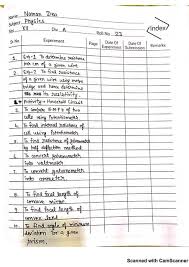 Name: Naman Deo
Subject: Physics
Std: XII Div A Roll No: 23
Index
Sr. No. Experiment Page Date Of Experiment Date Of Submission Remarks
1. Exp-1 To determine resistance
per cm of a given wire
2. Exp-2 To find resistance
of a given wire using metre
bridge and hence determine
the resistivity.
Activity - Household Circuit
4. To compare of emf of
two of
using potentiometer
5. To find internal resistance
of cell using potentiometer
6. To find resistance of
galvanometer
7. To convert galvanometer
into voltmeter
8. To convert galvanometer
into ammeter
To find focal length of
mirror
10. To find focal length of
lens
To find angle of minimum
deviation for a given
prism.
Scanned with CamScanner